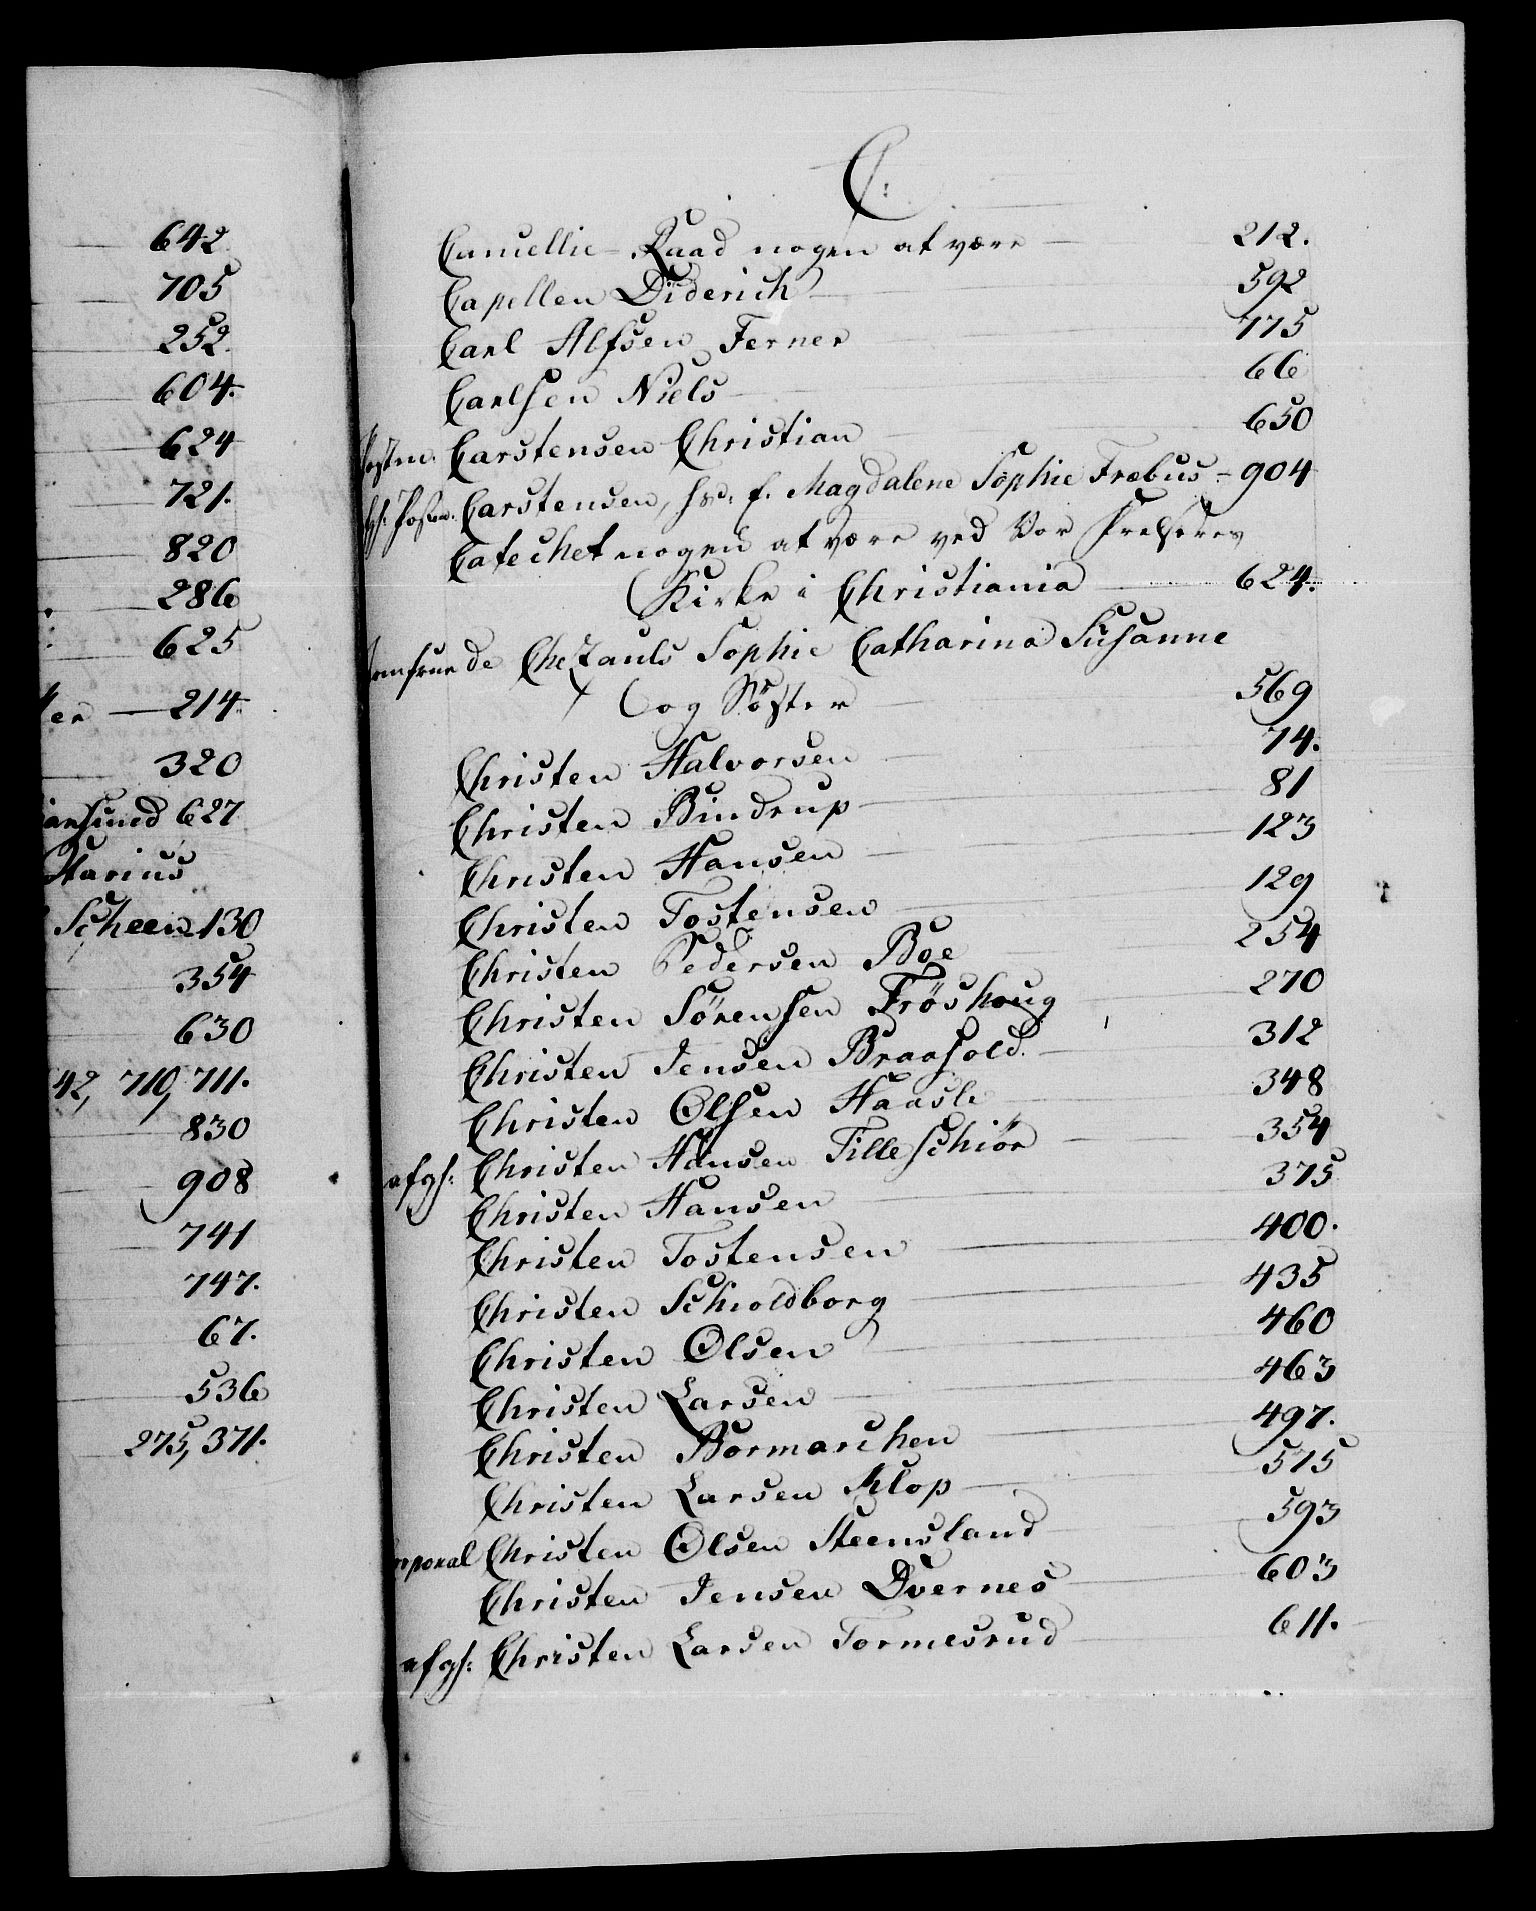 642
705
252
604.
624
721.
820
286
625
ter 214
320
ansund 627
Harius
Scheen 130
354
630
42, 710, 711.
830
908
741
747.
67.
536
275, 371.
C:
Cancellie-Raad nogen at være 212.
Capellen Diderich 592
Carl Alfsen Ferner 775
Carlsen Niels 66
Carstensen Christian 650
Carstensen, f. Magdalene Sophie Fræbus 904
Catechet nogen at være ved Vor Frelseres
Kirke i Christiania 624.
de Chezauls Sophie Catharina Susanne
og Söster 569
Christen Halvorsen 74.
Christen Bindrup 81
Christen Hansen 123
Christen Tostensen 129
Christen Pedersen Boe 254
Christen Sörensen Fröshoug 270
Christen Jensen Braafold. 312
Christen Olsen Haasle 348
afgs: Christen Hansen Tilleschiör 354
Christen Hansen 375
Christen Tostensen 400.
Christen Schioldborg 435
Christen Olsen 460
Christen Larsen 463
Christen Bormarchen 497.
Christen Larsen Klop 575
rporal Christen Olsen Steensland 593
Christen Jensen Dvernes 603
afgs: Christen Larsen Tormesrud 611.